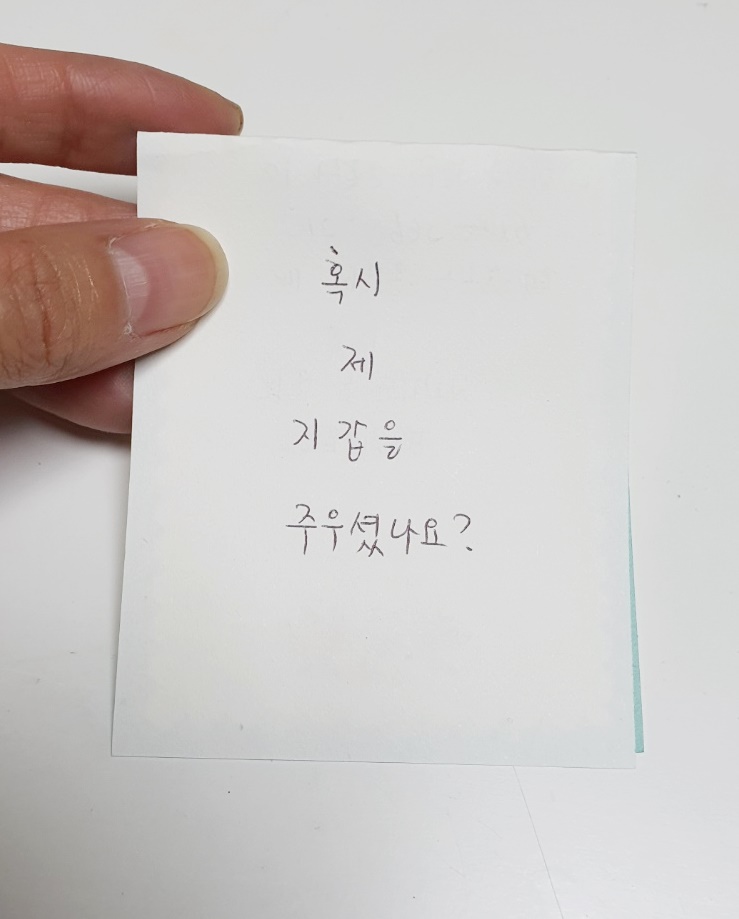 혹시
제
지갑을
주우셨나요?